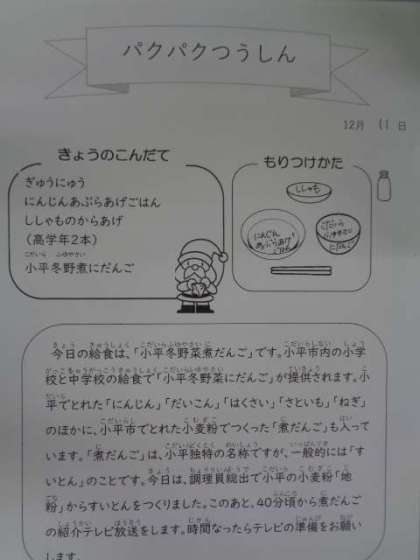 パクパクつうしん
12月 11日
きょうのこんだて
ぎゅうにゅう
にんじんあぶらあげごはん
ししゃものからあげ
(高学年2本)
小平冬野菜煮にだんご
もりつけかた
ししゃも
にんじん
あぶらあげ
ごはん
今日の給食は、「小平冬野菜煮だんご」です。小平市内の小学
校と中学校の給食で「小平冬野菜にだんご」が提供されます。小
平でとれた「にんじん」「だいこん」「はくさい」「さといも」「ねぎ」
のほかに、小平市でとれた小麦粉でつくった「煮だんご」も入って
います。「煮だんご」は、小平独特の名称ですが、一般的には「す
いとん」のことです。今日は、調理員総出で小平の小麦粉「地
粉」からすいとんをつくりました。このあと、40分頃から煮だんご
の紹介テレビ放送をします。時間なったらテレビの準備をお願い
します。